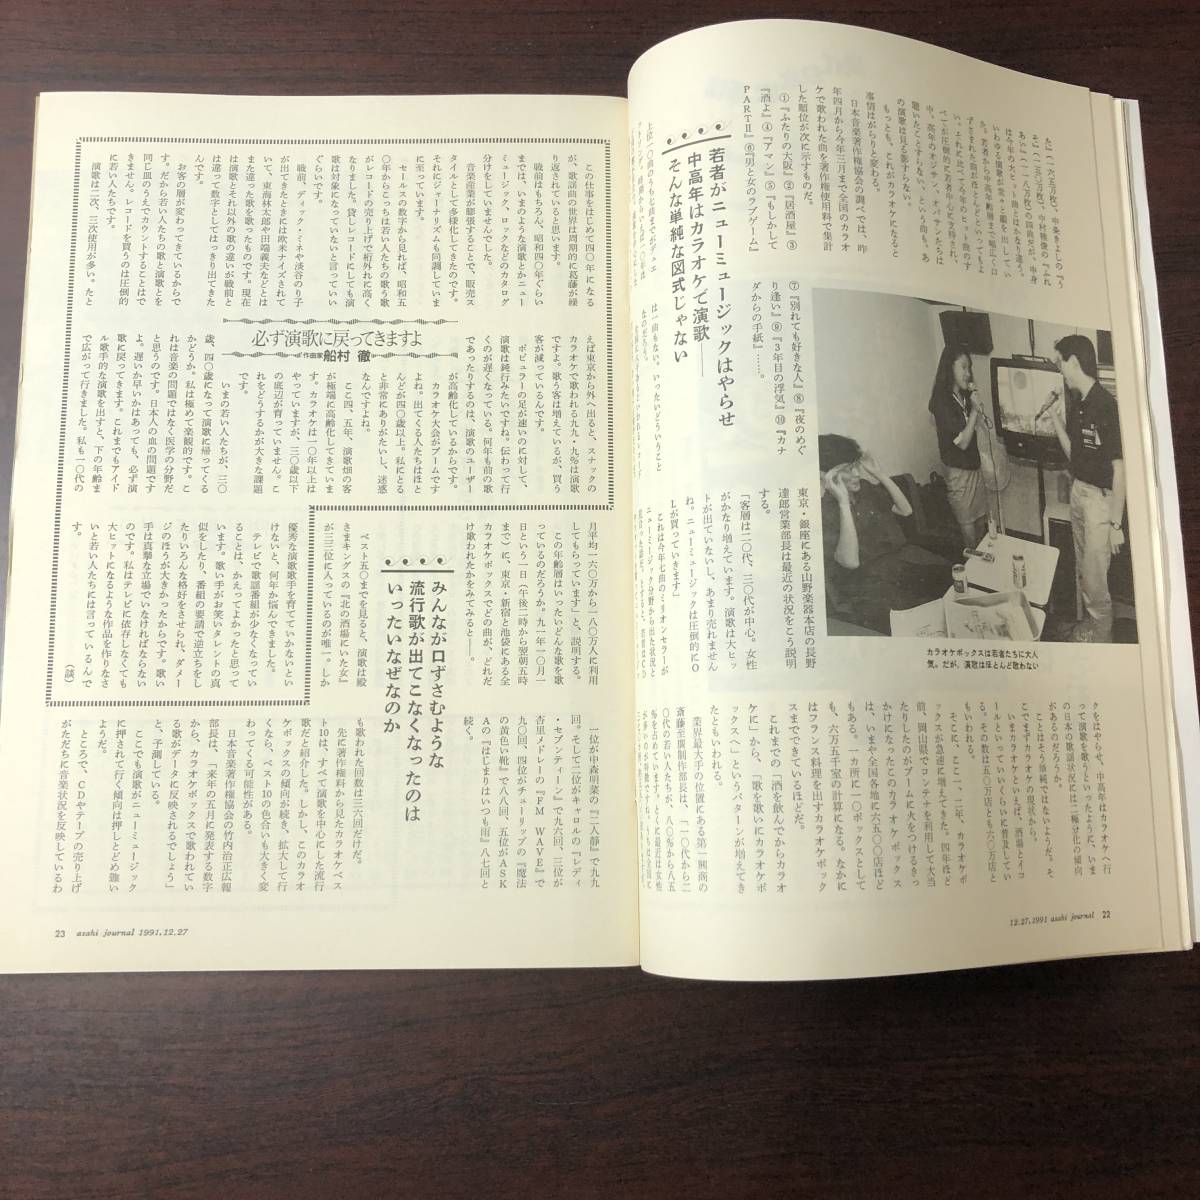 た』（一六五万枚）、中条きよしの『う
そ』（一三〇万枚）、中村雅俊の『ふれ
あい』（一一八万枚）の四曲だが、中身
は今年の大ヒット曲とはかなり違う。
いわゆる演歌が堂々と顔を出してい
る。若者から中高年齢層まで幅広く口
ずさまれた曲がほとんどといってもよ
い。それに比べて今年のヒット曲のす
べてが圧倒的に若者中心に支持され、
中、高年のオジサン、オバサンたちは
聴いたことすらない、という曲も。あ
の演歌は見る影すらない。
もっとも、これがカラオケになると
事情はがらりと変わる。
日本音楽著作権協会の調べでは、昨
年四月から今年三月まで全国のカラオ
ケで歌われた曲を著作権使用料で集計
した順位が次に示すものだ。
①『ふたりの大阪』②『居酒屋』③
『酒よ』④『アマン』⑤『もしかして
PARTⅡ』⑥『男と女のラブゲーム』
⑦『別れても好きな人』⑧『夜のめぐ
り逢い』⑨『3年目の浮気』⑩『カナ
ダからの手紙』……。
若者がニューミュージックはやらせ
中高年はカラオケで演歌──
そんな単純な図式じゃない
上位一〇曲のうち七曲までがデュエ
は一曲もない。いったいどういうこと
なのだろう。
東京・銀座にある山野楽器本店の長野
達郎営業部長は最近の状況をこう説明
する。
「客層は二〇代、三〇代が中心。女性
がかなり増えています。演歌は大ヒッ
トが出ていないし、あまり売れません
ね。ニューミュージックは圧倒的にO
Lが買っていきます」
これは今年七曲のミリオンセラーが
ニューミュージック分野から出た状況と
カラオケボックスは若者たちに大人
気。だが、演歌はほとんど歌わない
クをはやらせ、中高年はカラオケへ行
って演歌を歌うといったように、いま
の日本の歌謡状況には二極分化の傾向
があるのだろうか。
ことはそう単純ではないようだ。そ
こでまずカラオケの現状から。
いまカラオケといえば、酒場とイコ
ールといっていいくらいに普及してい
る。その数は五〇万店とも六〇万店と
もいわれる。
そこに、ここ一、二年、カラオケボ
ックスが急速に増えてきた。四年ほど
前、岡山県でコンテナを利用して大当
たりしたのがブームに火をつけるきっ
かけになったこのカラオケボックス
は、いまや全国各地に六五〇〇店ほど
もある。一カ所に一〇ボックスとして
も、六万五千室の計算になる。なかに
はフランス料理を出すカラオケボック
スまでできているほどだ。
これまでの「酒を飲んでからカラオ
ケに」から、「歌を歌いにカラオケボ
ックスへ」というパターンが増えてき
たともいわれる。
業界最大手の位置にある第一興商の
斎藤至廣制作部長は、「一〇代から二
〇代の若い人たちが、八〇％から八五
％を占めています。
12.27.1991 asahi journal 22
月平均一六〇万から一八〇万人に利用
してもらっています」と、説明する。
この年齢層はいったいどんな歌を歌
っているのだろうか。九一年一〇月一
日という一日（午後二時から翌朝五時
まで）に、東京・新宿と池袋にある全
カラオケボックスでどの曲が、どれだ
け歌われたかをみてみると──。
みんなが口ずさむような
流行歌が出てこなくなったのは
いったいなぜなのか
一位が中森明菜の『二人静』で九九
回。そして二位がキャロルの『レディ
・セブンティーン』で九六回、三位が
杏里メドレーの『FM WAVE』で
九〇回、四位がチューリップの『魔法
の黄色い靴』で八八回、五位がASK
Aの『はじまりはいつも雨』八七回と
続く。
ベスト五〇までを見ると、演歌は殿
さまキングスの『北の酒場にいた女』
が三三位に入っているのが唯一。しか
も歌われた回数は三六回だけだ。
先に著作権料から見たカラオケベス
ト10は、すべて演歌を中心にした流行
歌だと紹介した。しかし、このカラオ
ケボックスの傾向が続き、拡大して行
くなら、ベスト10の色合いも大きく変
わってくる可能性がある。
日本音楽著作権協会の竹内治正広報
部長は、「来年の五月に発表する数字
から、カラオケボックスで歌われてい
る歌がデータに反映されるでしょう」
と、予測している。
ここでも演歌がニューミュージック
に押されて行く傾向は押しとどめ難い
ようだ。
ところで、CDやテープの売り上げ
がただちに音楽状況を反映しているわ
必ず演歌に戻ってきますよ
作曲家 船村 徹
この仕事をはじめて四〇年になる
が、歌謡曲の世界は周期的に葛藤が繰
り返されていると思います。
戦前はもちろん、昭和四〇年ぐらい
までは、いまのような演歌とかニュー
ミュージック、ロックなどのカタログ
分けをしていませんでした。
音楽産業が膨張することで、販売ス
タイルとして多様化してきたのです。
それにジャーナリズムも同調していま
に至っています。
セールスの数字から見れば、昭和五
〇年からこっちは若い人たちの歌う歌
がレコードの売り上げで桁外れに高く
なりました。貸しレコードにしても演
歌は対象になっていないと言っていい
ぐらいです。
戦前、ディック・ミネや淡谷のり子
が出てきたときには欧米ナイズされて
いて、東海林太郎や田端義夫などとは
また違った歌を歌ったものです。現在
は演歌とそれ以外の歌の違いが戦前と
は違って数字としてはっきり出てきた
んです。
お客の層が変わってきているからで
す。だから若い人たちの歌と演歌とを
同じ皿のうえでカウントすることはで
きません。レコードを買うのは圧倒的
に若い人たちです。
演歌は二次、三次使用が多い。たと
えば東京から外へ出ると、スナックの
カラオケで歌われる九九・九％は演歌
ですよ。歌う客は増えているが、買う
客が減っているんです。
ポピュラーの足が速いのに対して、
演歌は鈍行みたいですね。伝わって行
くのが遅くなっている。何年も前の歌
であったりするのは、演歌のユーザー
が高齢化しているからです。
カラオケ大会がブームです
よね。出てくる人たちはほと
んどが四〇歳以上。私にとる
と非常にありがたいし、迷惑
なんですよね。
ここ四、五年、演歌畑の客
が極端に高齢化してきていま
す。カラオケは一〇年以上は
やっていますが、三〇歳以下
の底辺が育っていません。こ
れをどうするかが大きな課題
です。
いまの若い人たちが、三〇
歳、四〇歳になって演歌に帰ってくる
かどうか。私は極めて楽観的です。こ
れは音楽の問題ではなく医学の分野だ
と思うのです。日本人の血の問題です
よ。遅いか早いかはあっても、必ず演
歌に戻ってきます。これまでもアイド
ル歌手的な演歌を出すと、下の年齢ま
で広がって行きました。私も一〇代の
優秀な演歌歌手を育てていかないとい
けないと、何年か悩んできました。
テレビで歌謡番組が少なくなってい
ることは、かえってよかったと思って
います。歌い手がお笑いタレントの真
似をしたり、番組の要請で逆立ちをし
たりいろんな格好をさせられ、ダメー
ジのほうが大きかったからです。歌い
手は真摯な立場でいなければならない
のです。私はテレビに依存しなくても
大ヒットになるような作品を作りなさ
いと若い人たちには言っているんで
す。（談）
23 asahi journal 1991.12.27